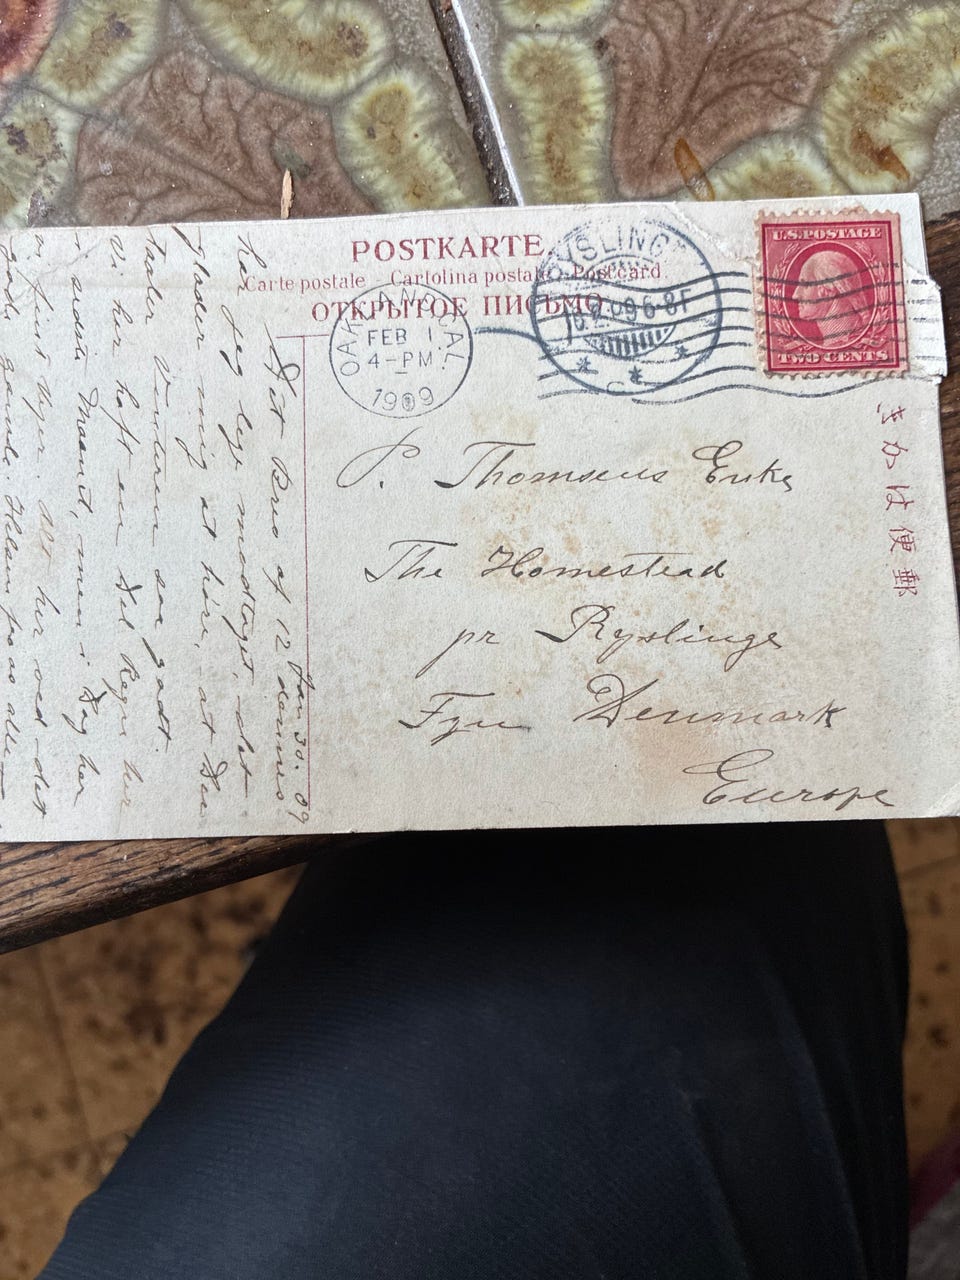 POSTKARTE
Carte postale Cartolina postale Postcard
ОТКРЫТОЕ ПИСЬМО
RYSLINGE
16.2.09 6-8F
U.S. POSTAGE
TWO CENTS
OAKLAND, CAL.
FEB 1
4-PM
1909
郵便はかき
P. Thomsens Enke
The Homestead
pr Ryslinge
Fyn Denmark
Europe
Jan 30. 09
Dit Brev af 12 dennes
har jeg lige modtaget, det
glæder mig at höre, at Du
taaler Vinteren saa godt.
Vi har haft en Del Regn her
i sidste Maanet, men i Dag har
vi fint Vejr. Alt her ved det
gode gamle. Hilsen fra os alle